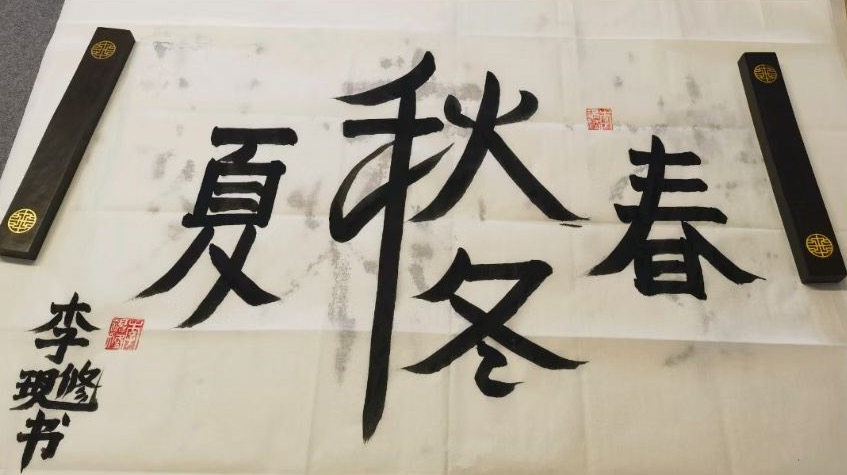 春
秋
冬
夏
李修现书